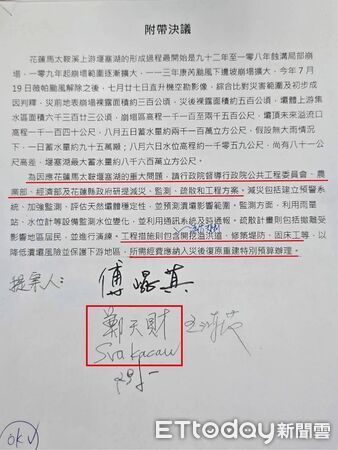 附帶決議
花蓮馬太鞍溪上游堰塞湖的形成過程最開始是九十二年至一零八年蝕溝局部崩
塌，一零九年起崩塌範圍逐漸擴大，一一三年康芮颱風下邊坡崩塌擴大，今年7月
19日薇帕颱風解除之後、七月廿七日直升機空勘影像，綜合比對災害範圍及初步成
因判釋，災前地表崩塌裸露面積約三百公頃，災後裸露面積約五百公頃，壩體上游集
水區面積六千三百廿三公頃，崩塌地長度約兩千五百五十公尺，壩頂未來溢流口
高程一千一百四十公尺，八月五日蓄水量約兩千一百萬立方公尺，假設無大雨情況
下，一日蓄水量約九十五萬立方公尺，八月六日水位高程約一千零五十九公尺，尚有八十一公尺
高差，堰塞湖最大蓄水量約八千六百萬立方公尺。
為因應花蓮馬太鞍溪堰塞湖的重大問題，請行政院督導行政院公共工程委員會、農
業部、經濟部及花蓮縣政府研提減災、監測、疏散和工程方案。減災包括建立預警系
統、加強監測，評估天然壩體穩定性，並預測潰壩影響範圍。監測方面，利用雨量
站、水位計等設備監測水位變化，並利用通訊系統及時通報。疏散計劃則包括撤離受
影響地區居民，並進行演練。工程措施則包含開挖溢洪道、修築堤防、固床工等，以
降低潰壩風險並保護下游地區，所需經費應納入災後復原重建特別預算辦理。
提案人：
傅崐萁
鄭天財
Sra Kacaw
OK
ETtoday新聞雲